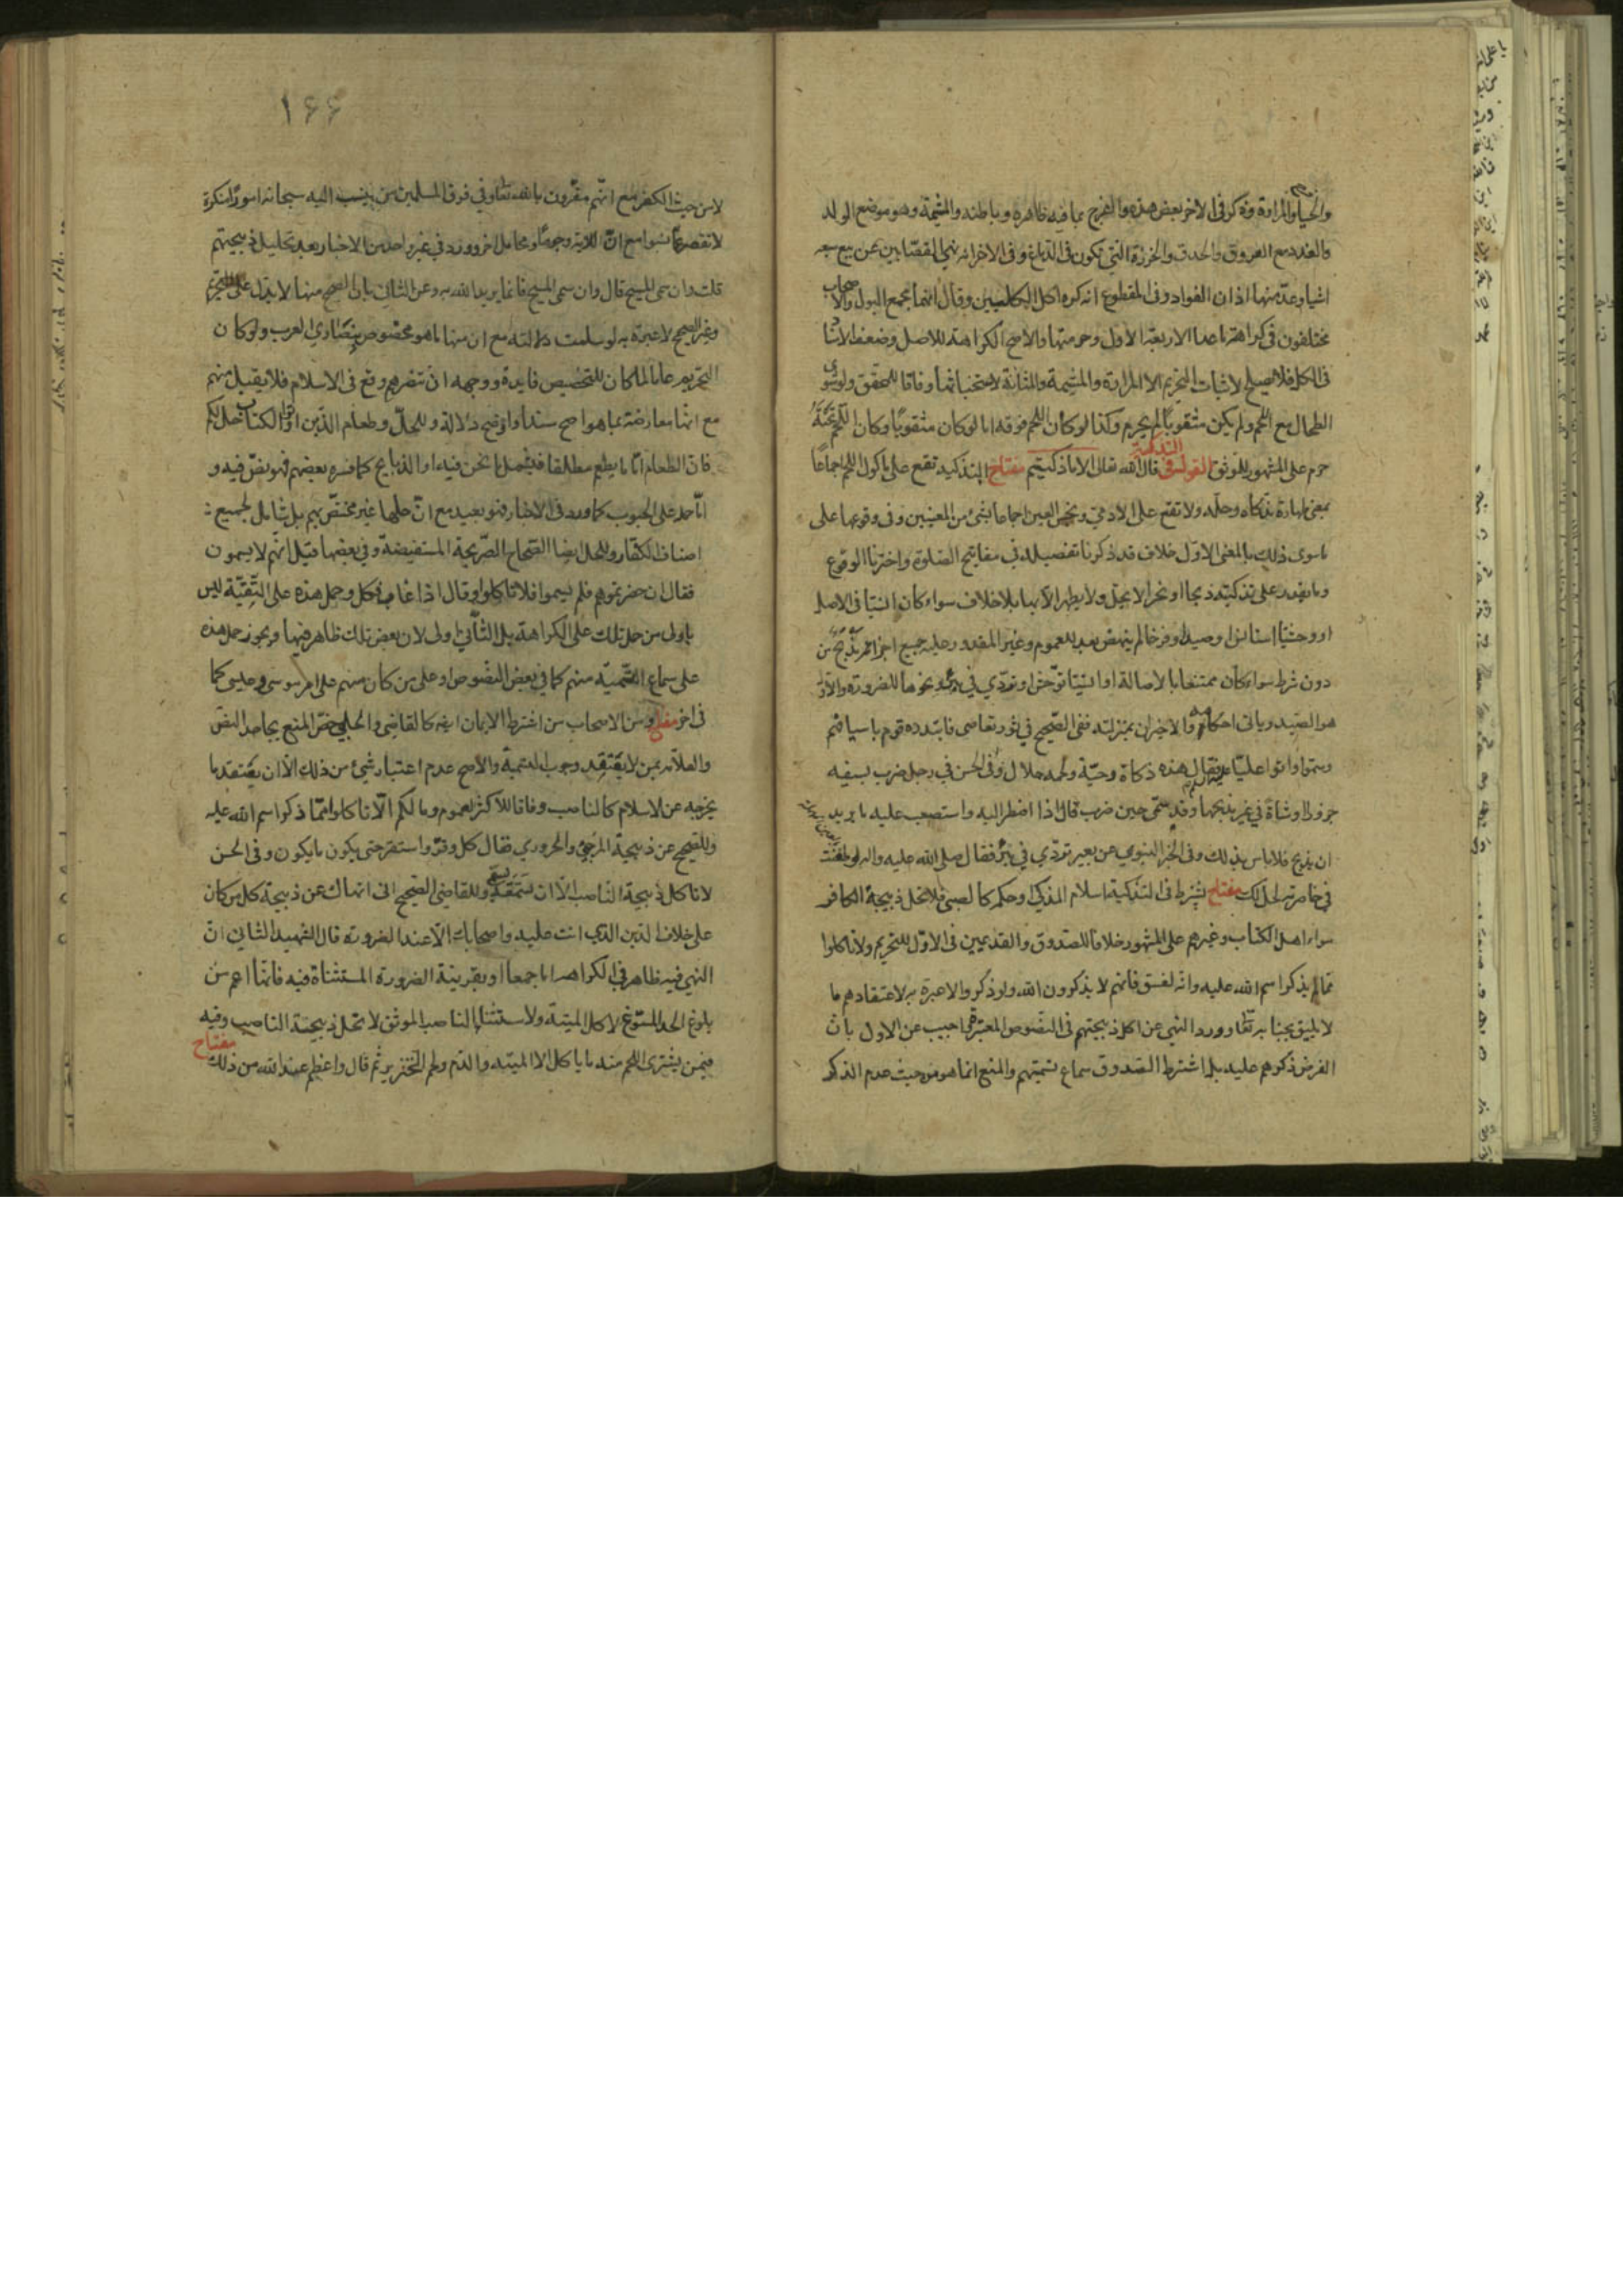 والحيا والمرارة وذكر فى الاخر بعض هذه والفرج بما فيه ظاهره وباطنه والمشيمة وهو موضع الولد
والغدد مع العروق والحدق والخرزة التي تكون فى الدماغ وفى الاخر انه نهى القصابين عن بيع سبعه
اشياء وعد منها اذان الفواد وفى المقطوع انه كره اكل الكليتين وقال انهما مجمع البول والاصحاب
مختلفون فى كراهة ما عدا الاربعة الاول وحرمتها والاصح الكراهة للاصل وضعف الاسناد
فى الكل فلا يصلح لاثبات التحريم الا المرارة والمشيمة والمثانة لاستخباثها وفاقا للمحقق ولو شوى
الطحال مع اللحم ولم يكن مثقوبا لم يحرم وكذا لو كان اللحم فوقه اما لو كان مثقوبا وكان اللحم تحته
حرم على المشهور للموثق القول فى التذكية قال الله تعالى الا ما ذكيتم مفتاح التذكية تقع على ماكول اللحم اجماعا
بمعنى طهارة بذكاه وحله ولا تقع على الادمي ونجس العين اجماعا بشئ من المعنيين وفى وقوعها على
ما سوى ذلك بالمعنى الاول خلاف قد ذكرنا تفصيله فى مفاتيح الصلوة واخترنا الوقوع
وما يقدر على تذكيته ذبحا او نحرا لا يحل ولا يطهر الا بها بلا خلاف سواء كان انسيا فى الاصل
او وحشيا استانس او صيدا وفرخا لم ينهض بعد للعموم وغير المقدور عليه جميع اجزائه مذبح من
دون شرط سواء كان ممتنعا بالاصالة او انسيا توحش او تردى فى بئر ونحوها للضرورة والاول
هو الصيد وياتى احكامه والاخيران بمنزلته ففى الصحيح فى ثور تعاصى فابتدره قوم باسيافهم
وسموا واتوا عليا فقال هذه ذكاة وحية ولحمه حلال وفى الحسن فى رجل ضرب بسيفه
جزورا او شاة فى غير مذبحها وقد سمى حين ضرب قال اذا اضطر اليه واستصعب عليه ما يريد
ان يذبح فلا باس بذلك وفى الخبر النبوي عن بعير تردى فى بئر فقال صلى الله عليه واله لو طعنت
فى خاصرته لحل لك مفتاح يشترط فى التذكية اسلام المذكى او حكمه كالصبي فلا تحل ذبيحة الكافر
سواء اهل الكتاب وغيرهم على المشهور خلافا للصدوق والقديمين فى الاول للتحريم ولا تاكلوا
مما لم يذكر اسم الله عليه وانه لفسق فانهم لا يذكرون الله ولو ذكروا لا عبرة به لاعتقادهم ما
لا يليق بجنابه تعا وورد النهي عن اكل ذبيحتهم فى النصوص المعتبرة اجيب عن الاول بان
الفرض ذكرهم عليه بل اشترط الصدوق سماع تسميتهم والمنع انما هو من حيث عدم الذكر
١٦٦
لا من حيث الكفر مع انهم مقرون بالله تعا وفي فرق المسلمين من ينسب اليه سبحانه امورا منكرة
لا تقصر عما نسبوا مع ان للاية وجوها ومحامل اخر وورد فى غير واحد من الاخبار بعد تحليل ذبيحتهم
قلت وان سمى المسيح قال وان سمى المسيح فانما يريد الله به وعن الثانى بان الصحيح منها لا يدل على التحريم
وغير الصحيح لا عبرة به لو سلمت دلالته مع ان منها ما هو مخصوص بنصارى العرب ولو كان
التحريم عاما لما كان للتخصيص فايدة ووجهه ان تنصرهم وقع فى الاسلام فلا يقبل منهم
مع انها معارضة بما هو اصح سندا واوضح دلالة وللحل وطعام الذين اوتوا الكتاب حل لكم
فان الطعام اما ما يطعم مطلقا فيشمل ما نحن فيه او الذبايح كما فسره بعضهم فهو نص فيه و
اما حمله على الحبوب كما ورد فى الاخبار فهو بعيد مع ان حلها غير مختص بهم بل شامل لجميع
اصناف الكفار وللحل ايضا الصحاح الصريحة المستفيضة وفى بعضها قيل انهم لا يسمون
فقال ان حضرتموهم فلم يسموا فلا تاكلوا وقال اذا غاب فكل وحمل هذه على التقية ليس
باولى من حمل تلك على الكراهة بل الثانى اولى لان بعض تلك ظاهر فيها ويجوز حمل هذه
على سماع التسمية منهم كما فى بعض النصوص او على من كان منهم على امر موسى وعيسى كما
فى اخر مفتاح ومن الاصحاب من اشترط الايمان ايضا كالقاضى والحلبى خص المنع بجاحد النص
والعلامة بمن لا يعتقد وجوب التسمية والاصح عدم اعتبار شيئ من ذلك الا ان يعتقد ما
يخرجه عن الاسلام كالناصب وفاقا للاكثر لعموم وما لكم الا تاكلوا مما ذكر اسم الله عليه
وللصحيح عن ذبيحة المرجئ والحروري فقال كل وقر واستقر حتى يكون ما يكون وفى الحسن
لا تاكل ذبيحة الناصب الا ان تسمعه يسمى وللقاضى الصحيح انى انهاك عن ذبيحة كل من كان
على خلاف الذين الذى انت عليه واصحابك الا عند الضرورة قال الشهيد الثانى ان
النهي فيه ظاهر فى الكراهة اما جمعا او بقرينة الضرورة المستثناة فيه فانها اعم من
بلوغ الحد المسوغ لاكل الميتة ولاستثناء الناصب الموثق لا تحل ذبيحة الناصب وفيه
فيمن يشترى اللحم منه ما ياكل الا الميتة والدم ولحم الخنزير ثم قال واعظم عند الله من ذلك مفتاح